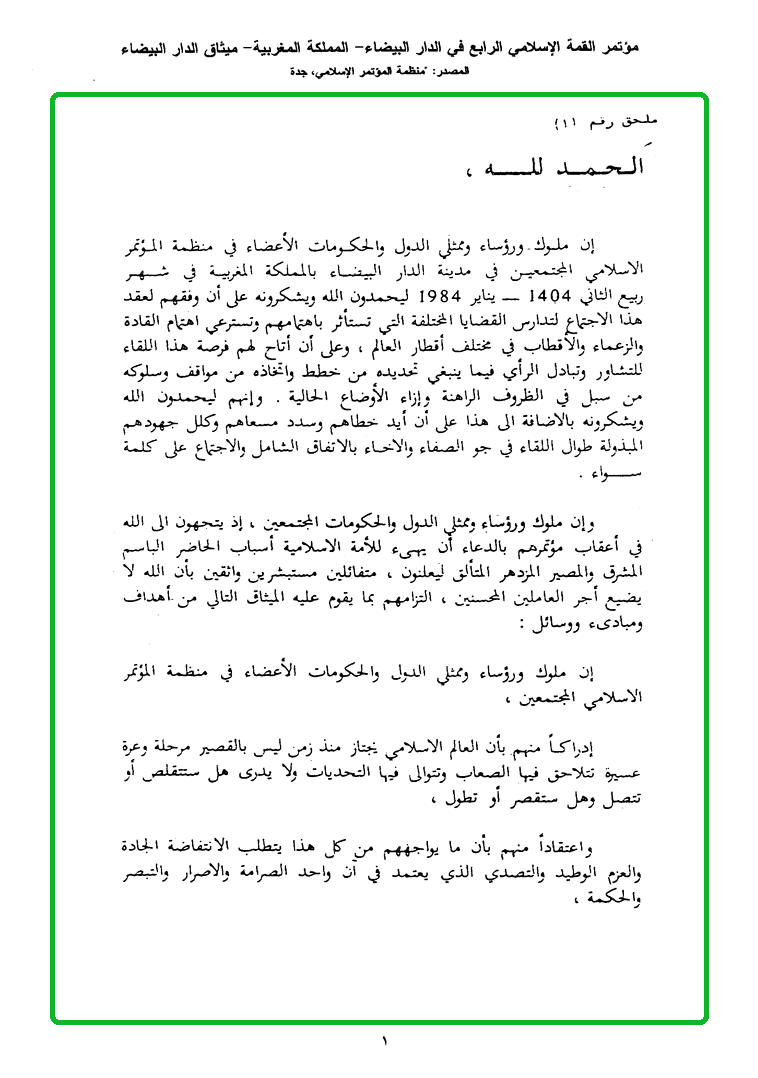 مؤتمر القمة الإسلامي الرابع في الدار البيضاء- المملكة المغربية- ميثاق الدار البيضاء
المصدر: "منظمة المؤتمر الإسلامي، جدة
ملحق رقم (١١
الحمد للـــه ،
إن ملوك ورؤساء وممثلي الدول والحكومات الأعضاء في منظمة المؤتمر
الاسلامي المجتمعين في مدينة الدار البيضاء بالمملكة المغربية في شهر
ربيع الثاني 1404 — يناير 1984 ليحمدون الله ويشكرونه على أن وفقهم لعقد
هذا الاجتماع لتدارس القضايا المختلفة التي تستأثر باهتمامهم وتسترعي اهتمام القادة
والزعماء والأقطاب في مختلف أقطار العالم ، وعلى أن أتاح لهم فرصة هذا اللقاء
للتشاور وتبادل الرأي فيما ينبغي تحديده من خطط واتخاذه من مواقف وسلوكه
من سبل في الظروف الراهنة وإزاء الأوضاع الحالية . وإنهم ليحمدون الله
ويشكرونه بالاضافة الى هذا على أن أيد خطاهم وسدد مسعاهم وكلل جهودهم
المبذولة طوال اللقاء في جو الصفاء والاخاء بالاتفاق الشامل والاجتماع على كلمة
ســـواء .
وإن ملوك ورؤساء وممثلي الدول والحكومات المجتمعين ، إذ يتجهون الى الله
في أعقاب مؤتمرهم بالدعاء أن يهيء للأمة الاسلامية أسباب الحاضر الباسم
المشرق والمصير المزدهر المتألق ليعلنون ، متفائلين مستبشرين واثقين بأن الله لا
يضيع أجر العاملين المحسنين ، التزامهم بما يقوم عليه الميثاق التالي من أهداف
ومبادىء ووسائل :
إن ملوك ورؤساء وممثلي الدول والحكومات الأعضاء في منظمة المؤتمر
الاسلامي المجتمعين ،
إدراكاً منهم بأن العالم الاسلامي يجتاز منذ زمن ليس بالقصير مرحلة وعرة
عسيرة تتلاحق فيها الصعاب وتتوالى فيها التحديات ولا يدرى هل ستتقلص أو
تتصل وهل ستقصر أو تطول ،
واعتقاداً منهم بأن ما يواجههم من كل هذا يتطلب الانتفاضة الجادة
والعزم الوطيد والتصدي الذي يعتمد في آن واحد الصرامة والاصرار والتبصر
والحكمة ،
١